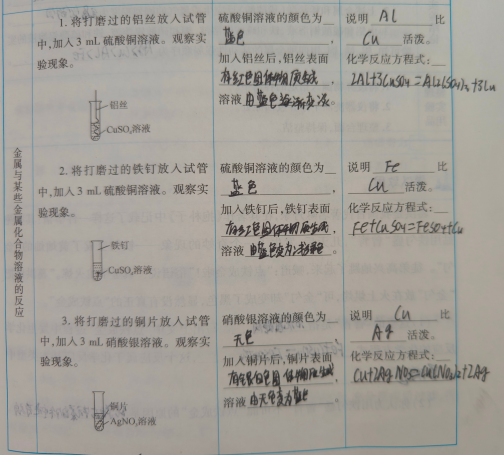 金属与某些金属化合物溶液的反应
1. 将打磨过的铝丝放入试管
中,加入 3 mL 硫酸铜溶液。观察实
验现象。
铝丝
CuSO₄溶液
硫酸铜溶液的颜色为
蓝色
加入铝丝后,铝丝表面
有红色固体物质生成,
溶液 由蓝色逐渐变浅。
说明 Al 比
Cu 活泼。
化学反应方程式:
2Al+3CuSO₄=Al₂(SO₄)₃+3Cu
2. 将打磨过的铁钉放入试管
中,加入 3 mL 硫酸铜溶液。观察实
验现象。
铁钉
CuSO₄溶液
硫酸铜溶液的颜色为
蓝色
加入铁钉后,铁钉表面
有红色固体物质生成,
溶液 由蓝色变为浅绿色
说明 Fe 比
Cu 活泼。
化学反应方程式:
Fe+CuSO₄=FeSO₄+Cu
3. 将打磨过的铜片放入试管
中,加入 3 mL 硝酸银溶液。观察实
验现象。
铜片
AgNO₃溶液
硝酸银溶液的颜色为
无色
加入铜片后,铜片表面
有银白色固体物质生成
溶液 由无色变为蓝色
说明 Cu 比
Ag 活泼。
化学反应方程式:
Cu+2AgNO₃=Cu(NO₃)₂+2Ag